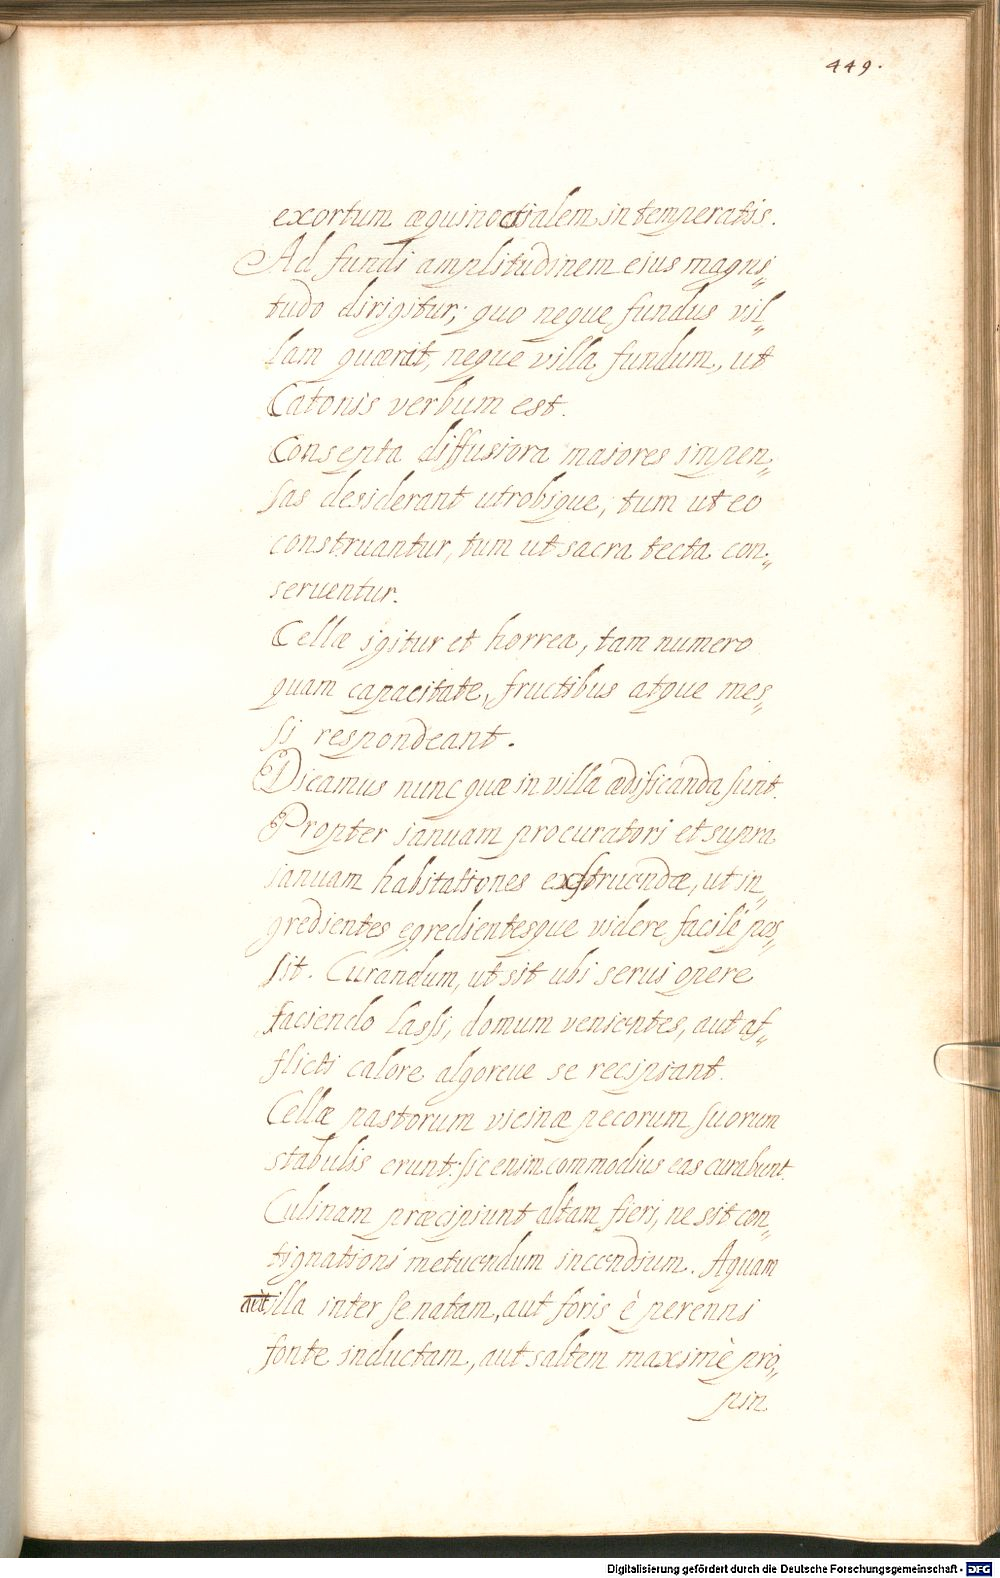 449.
exortum æquinoctialem intemperatis.
Ad fundi amplitudinem eius magni„
tudo dirigitur; quo neque fundus vil„
lam quærit, neque villa fundum, ut
Catonis verbum est.
Consepta diffusiora maiores impen„
sas desiderant utrobique, tum ut eo
construantur, tum ut sacra tecta con„
seruentur.
Cellæ igitur et horrea, tam numero
quam capacitate, fructibus atque mes„
si respondeant.
Dicamus nunc quæ in villa ædificanda sunt.
Propter ianuam procuratori et supra
ianuam habitationes exstruendæ, ut in„
gredientes egredientesque videre facilè pos„
sit. Curandum, ut sit ubi serui opere
faciendo lassi, domum venientes, aut af„
flicti calore algoreue se recipiant.
Cellæ pastorum vicinæ pecorum suorum
stabulis erunt: sic enim commodius eas curabunt.
Culinam præcipiunt altam fieri, ne sit con„
tignationi metuendum incendium. Aquam
aut illa inter se natam, aut foris è perenni
fonte inductam, aut saltem maximè pro„
pin
Digitalisierung gefördert durch die Deutsche Forschungsgemeinschaft - DFG